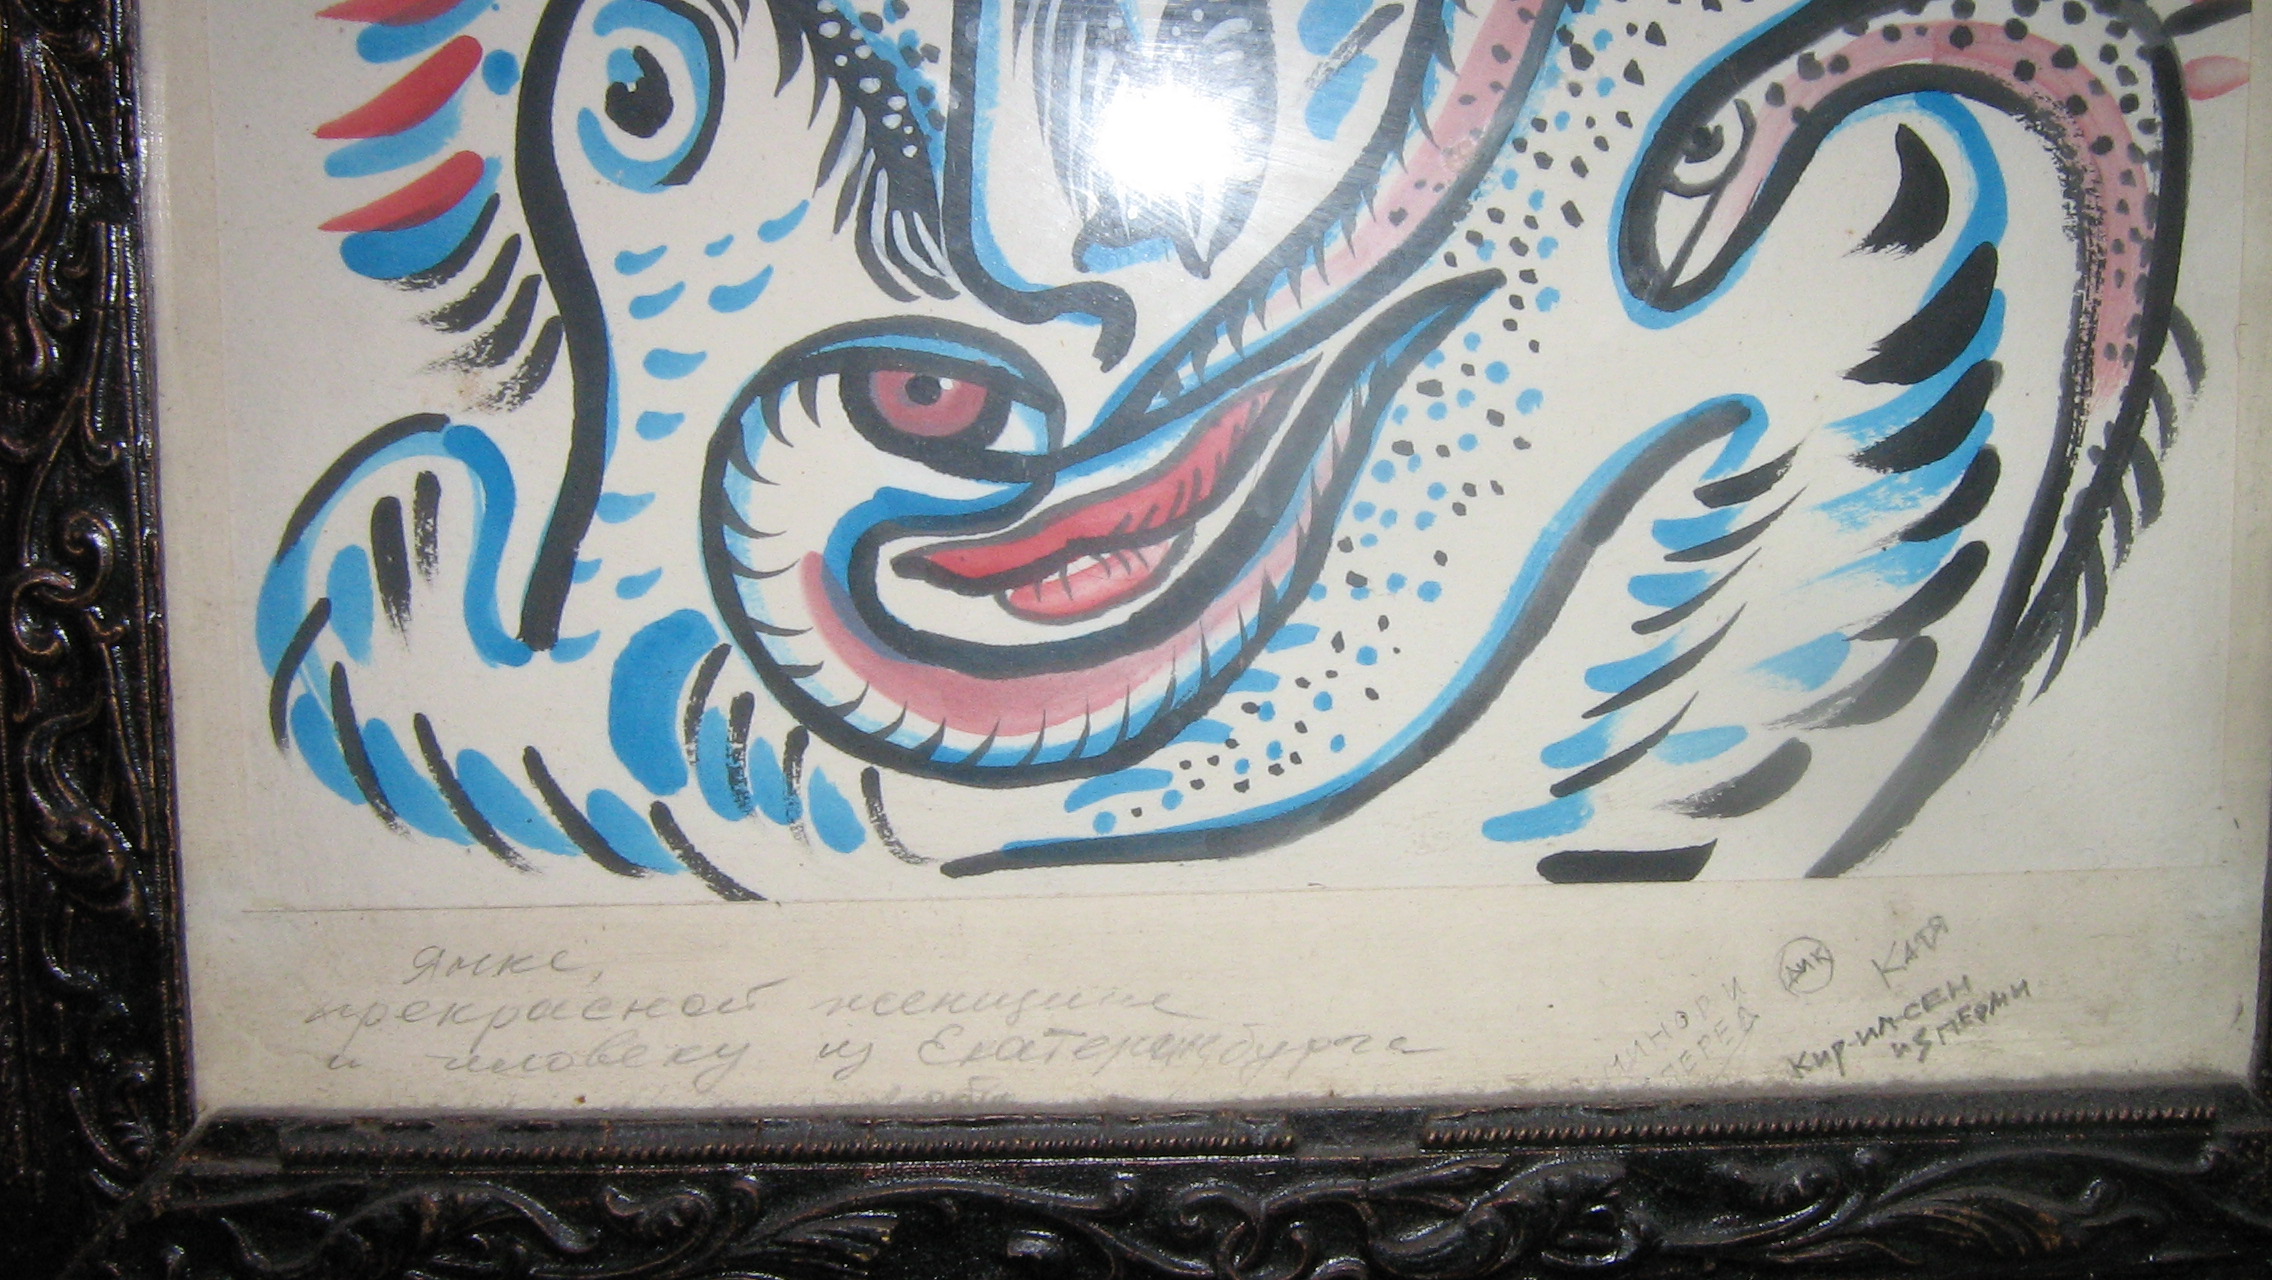 Янке,
прекрасной женщине
и человеку из Екатеринбурга
МИНОРИ
ПЕРЕД
ДИК
КАТЯ
КИР-ИЛ-СЕН
ИЗ ПЕРМИ